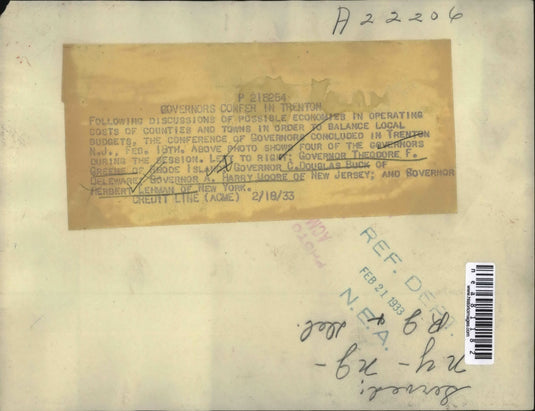 A22206
P 218254
GOVERNORS CONFER IN TRENTON
FOLLOWING DISCUSSIONS OF POSSIBLE ECONOMIES IN OPERATING
COSTS OF COUNTIES AND TOWNS IN ORDER TO BALANCE LOCAL
BUDGETS, THE CONFERENCE OF GOVERNORS CONCLUDED IN TRENTON
N.J., FEB. 18TH. ABOVE PHOTO SHOWS FOUR OF THE GOVERNORS
DURING THE SESSION. LEFT TO RIGHT: GOVERNOR THEODORE F.
GREENE OF RHODE ISLAND; GOVERNOR C. DOUGLAS BUCK OF
DELEWARE; GOVERNOR A. HARRY MOORE OF NEW JERSEY; AND GOVERNOR
HERBERT LEHMAN OF NEW YORK.
CREDIT LINE (ACME) 2/18/33
PHOTO
ACME
REF. DEPT
FEB 21 1933
N.E.A.
Served:
ny - nj -
RI & Del.
www.historicimages.com
nea81182